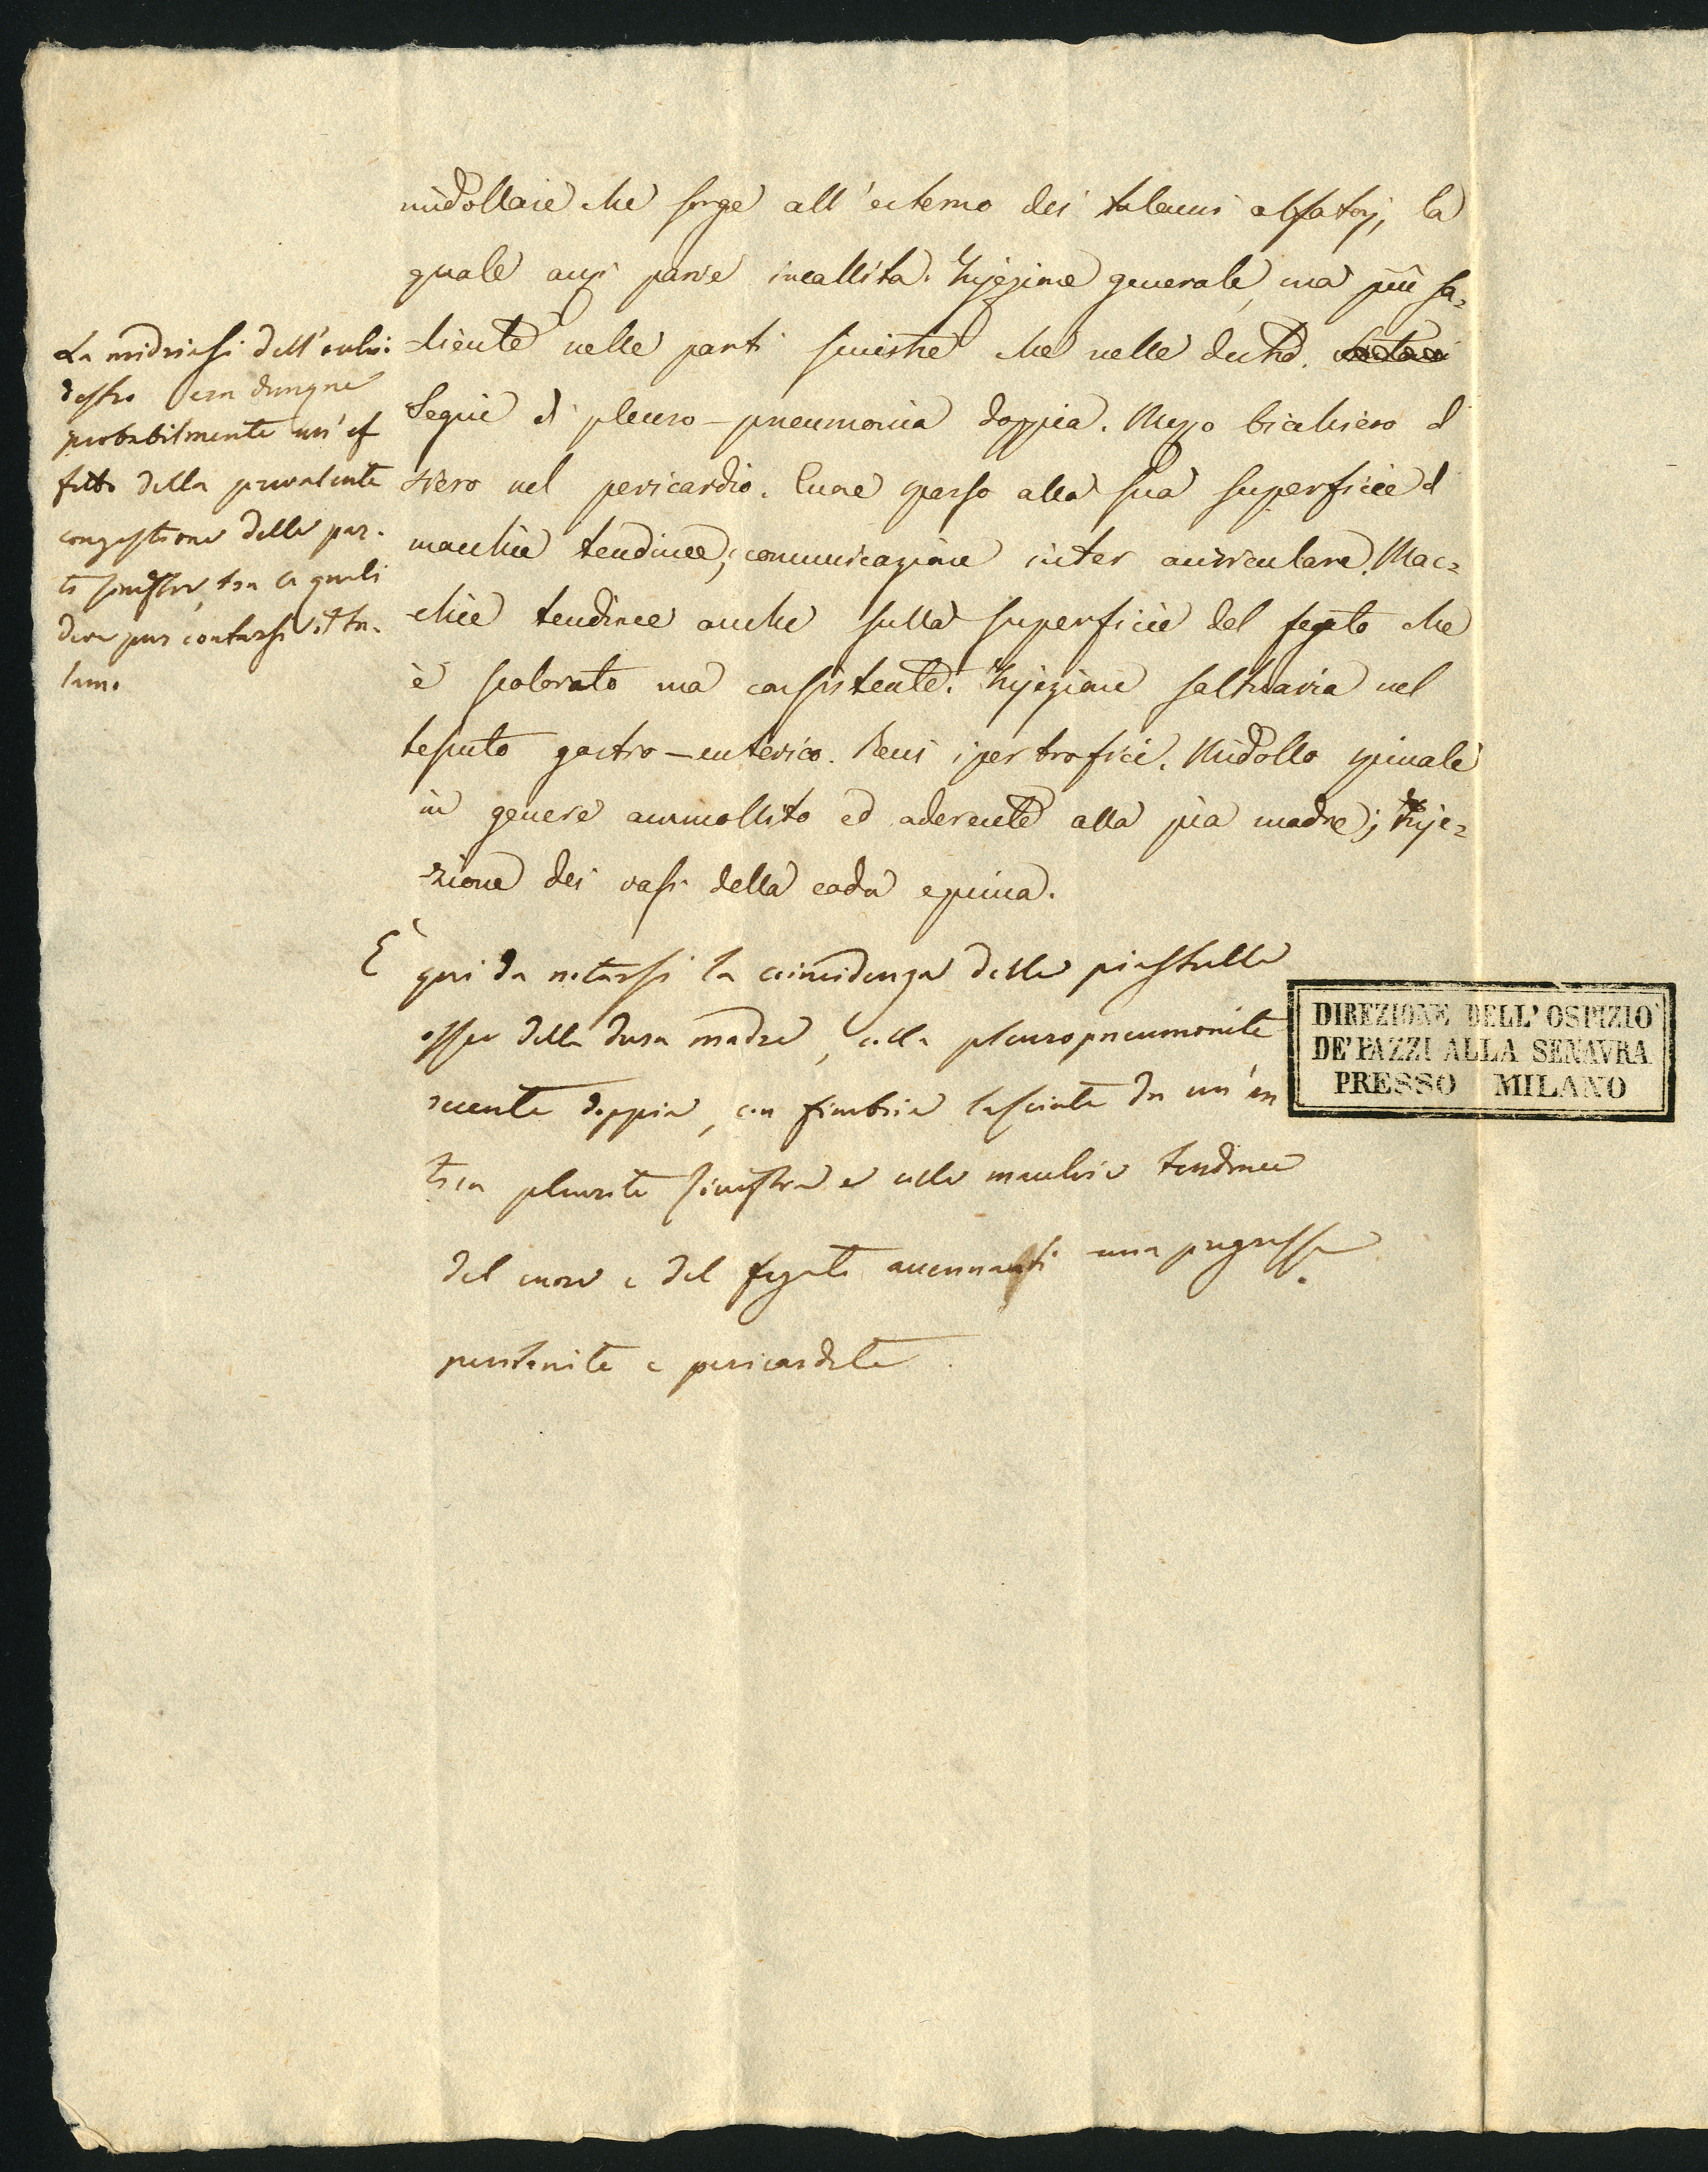 midollare che sorge all'esterno dei talami olfatorj, la
quale anzi parve incallita. Injezione generale, ma più sa=
liente nelle parti sinistre che nelle destre.
Seguie di pleuro-pneumonia doppia. Mezzo bicchiero di
siero nel pericardio. Cuore sparso alla sua superficie di
macchie tendinee; comunicazione inter auriculare. Mac=
chie tendinee anche sulla superficie del fegato che
è scolorato ma consistente. Injezione saltuaria nel
tessuto gastro-enterico. Reni ipertrofici. Midollo spinale
in genere ammollito ed aderente alla pia madre; Inje=
zione dei vasi della coda equina.
La midriasi dell'occhio
destro era dunque
probabilmente un'ef
fetto della prevalente
congestione delle par-
ti sinistre, tra le quali
deve pur contarsi il ta-
lamo
È qui da notarsi la coincidenza delle piastrelle
ossee della dura madre, colla pleuropneumonite
recente doppia, con fimbrie lasciate da un'an
tica pleurite sinistra e colle macchie tendinee
del cuore e del fegato accennanti una pregressa
peritonite e pericardite.
DIREZIONE DELL'OSPIZIO
DE' PAZZI ALLA SENAVRA
PRESSO MILANO